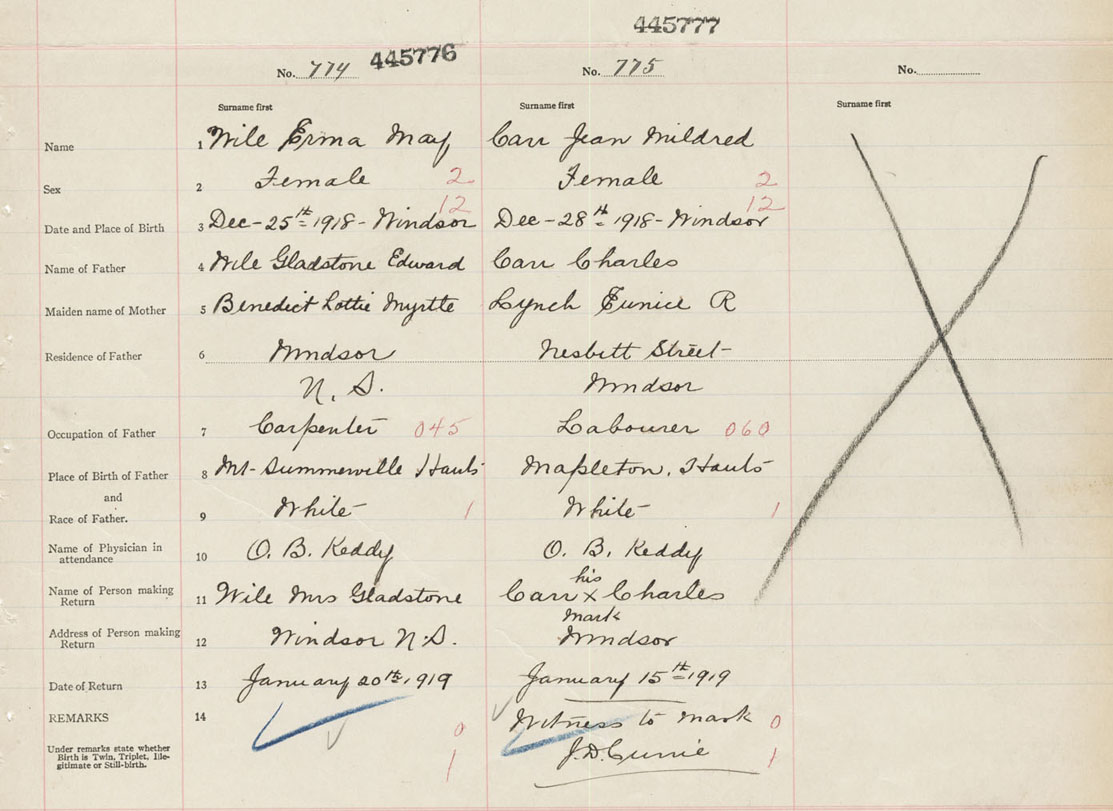 445777
445776
No. 774
No. 775
No.
Surname first
Surname first
Surname first
Name 1 Wile Erma May Carr Jean Mildred
Sex 2 Female 2 Female 2
12 12
Date and Place of Birth 3 Dec-25th 1918-Windsor Dec-28th 1918-Windsor
Name of Father 4 Wile Gladstone Edward Carr Charles
Maiden name of Mother 5 Benedict Lottie Myrtle Lynch Eunice R
Residence of Father 6 Windsor Nesbitt Street
N. S. Windsor
Occupation of Father 7 Carpenter 045 Labourer 060
Place of Birth of Father 8 Mt-Summerville Hants Mapleton, Hants
and
Race of Father. 9 White 1 White 1
Name of Physician in
attendance 10 O. B. Keddy O. B. Keddy
his
Name of Person making
Return 11 Wile Mrs Gladstone Carr x Charles
mark
Address of Person making
Return 12 Windsor N.S. Windsor
Date of Return 13 January 20th, 1919 January 15th 1919
REMARKS 14 0 Witness to mark 0
Under remarks state whether
Birth is Twin, Triplet, Ille-
gitimate or Still-birth.
1 J.D. Currie 1